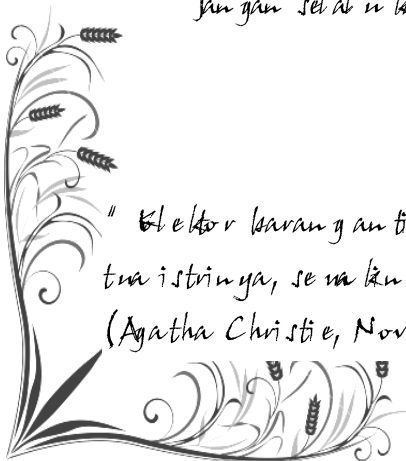 Jangan selalu
" Kolektor barang anti
tua istrinya, semakin
(Agatha Christie, Nov